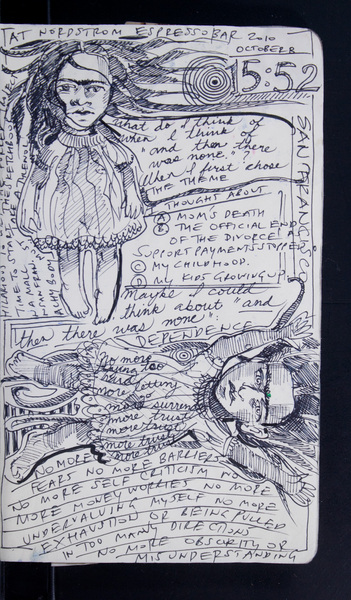 AT NORDSTROM ESPRESSO BAR 2010
OCTOBER 8
15:52
SAN FRANCISCO
what do I think of
when I think of
"and then there
was none."?
When I first chose
THE THEME
I THOUGHT ABOUT
A MOM'S DEATH
B THE OFFICIAL END
OF THE DIVORCE &
SUPPORT PAYMENTS STOPPED
C MY CHILDHOOD.
D MY KIDS GROWING UP.
Maybe I could
think about "and
then there was none":
DEPENDENCE
No more
trying too
hard
more letting
go
more surrender
more trust
more trust
more trust
more trust
NO MORE
FEARS NO MORE BARRIERS
NO MORE SELF CRITICISM NO
MORE MONEY WORRIES NO MORE
UNDERVALUING MYSELF NO MORE
EXHAUSTION OR BEING PULLED
IN TOO MANY DIRECTIONS
NO MORE OBSCURITY OR
MISUNDERSTANDING